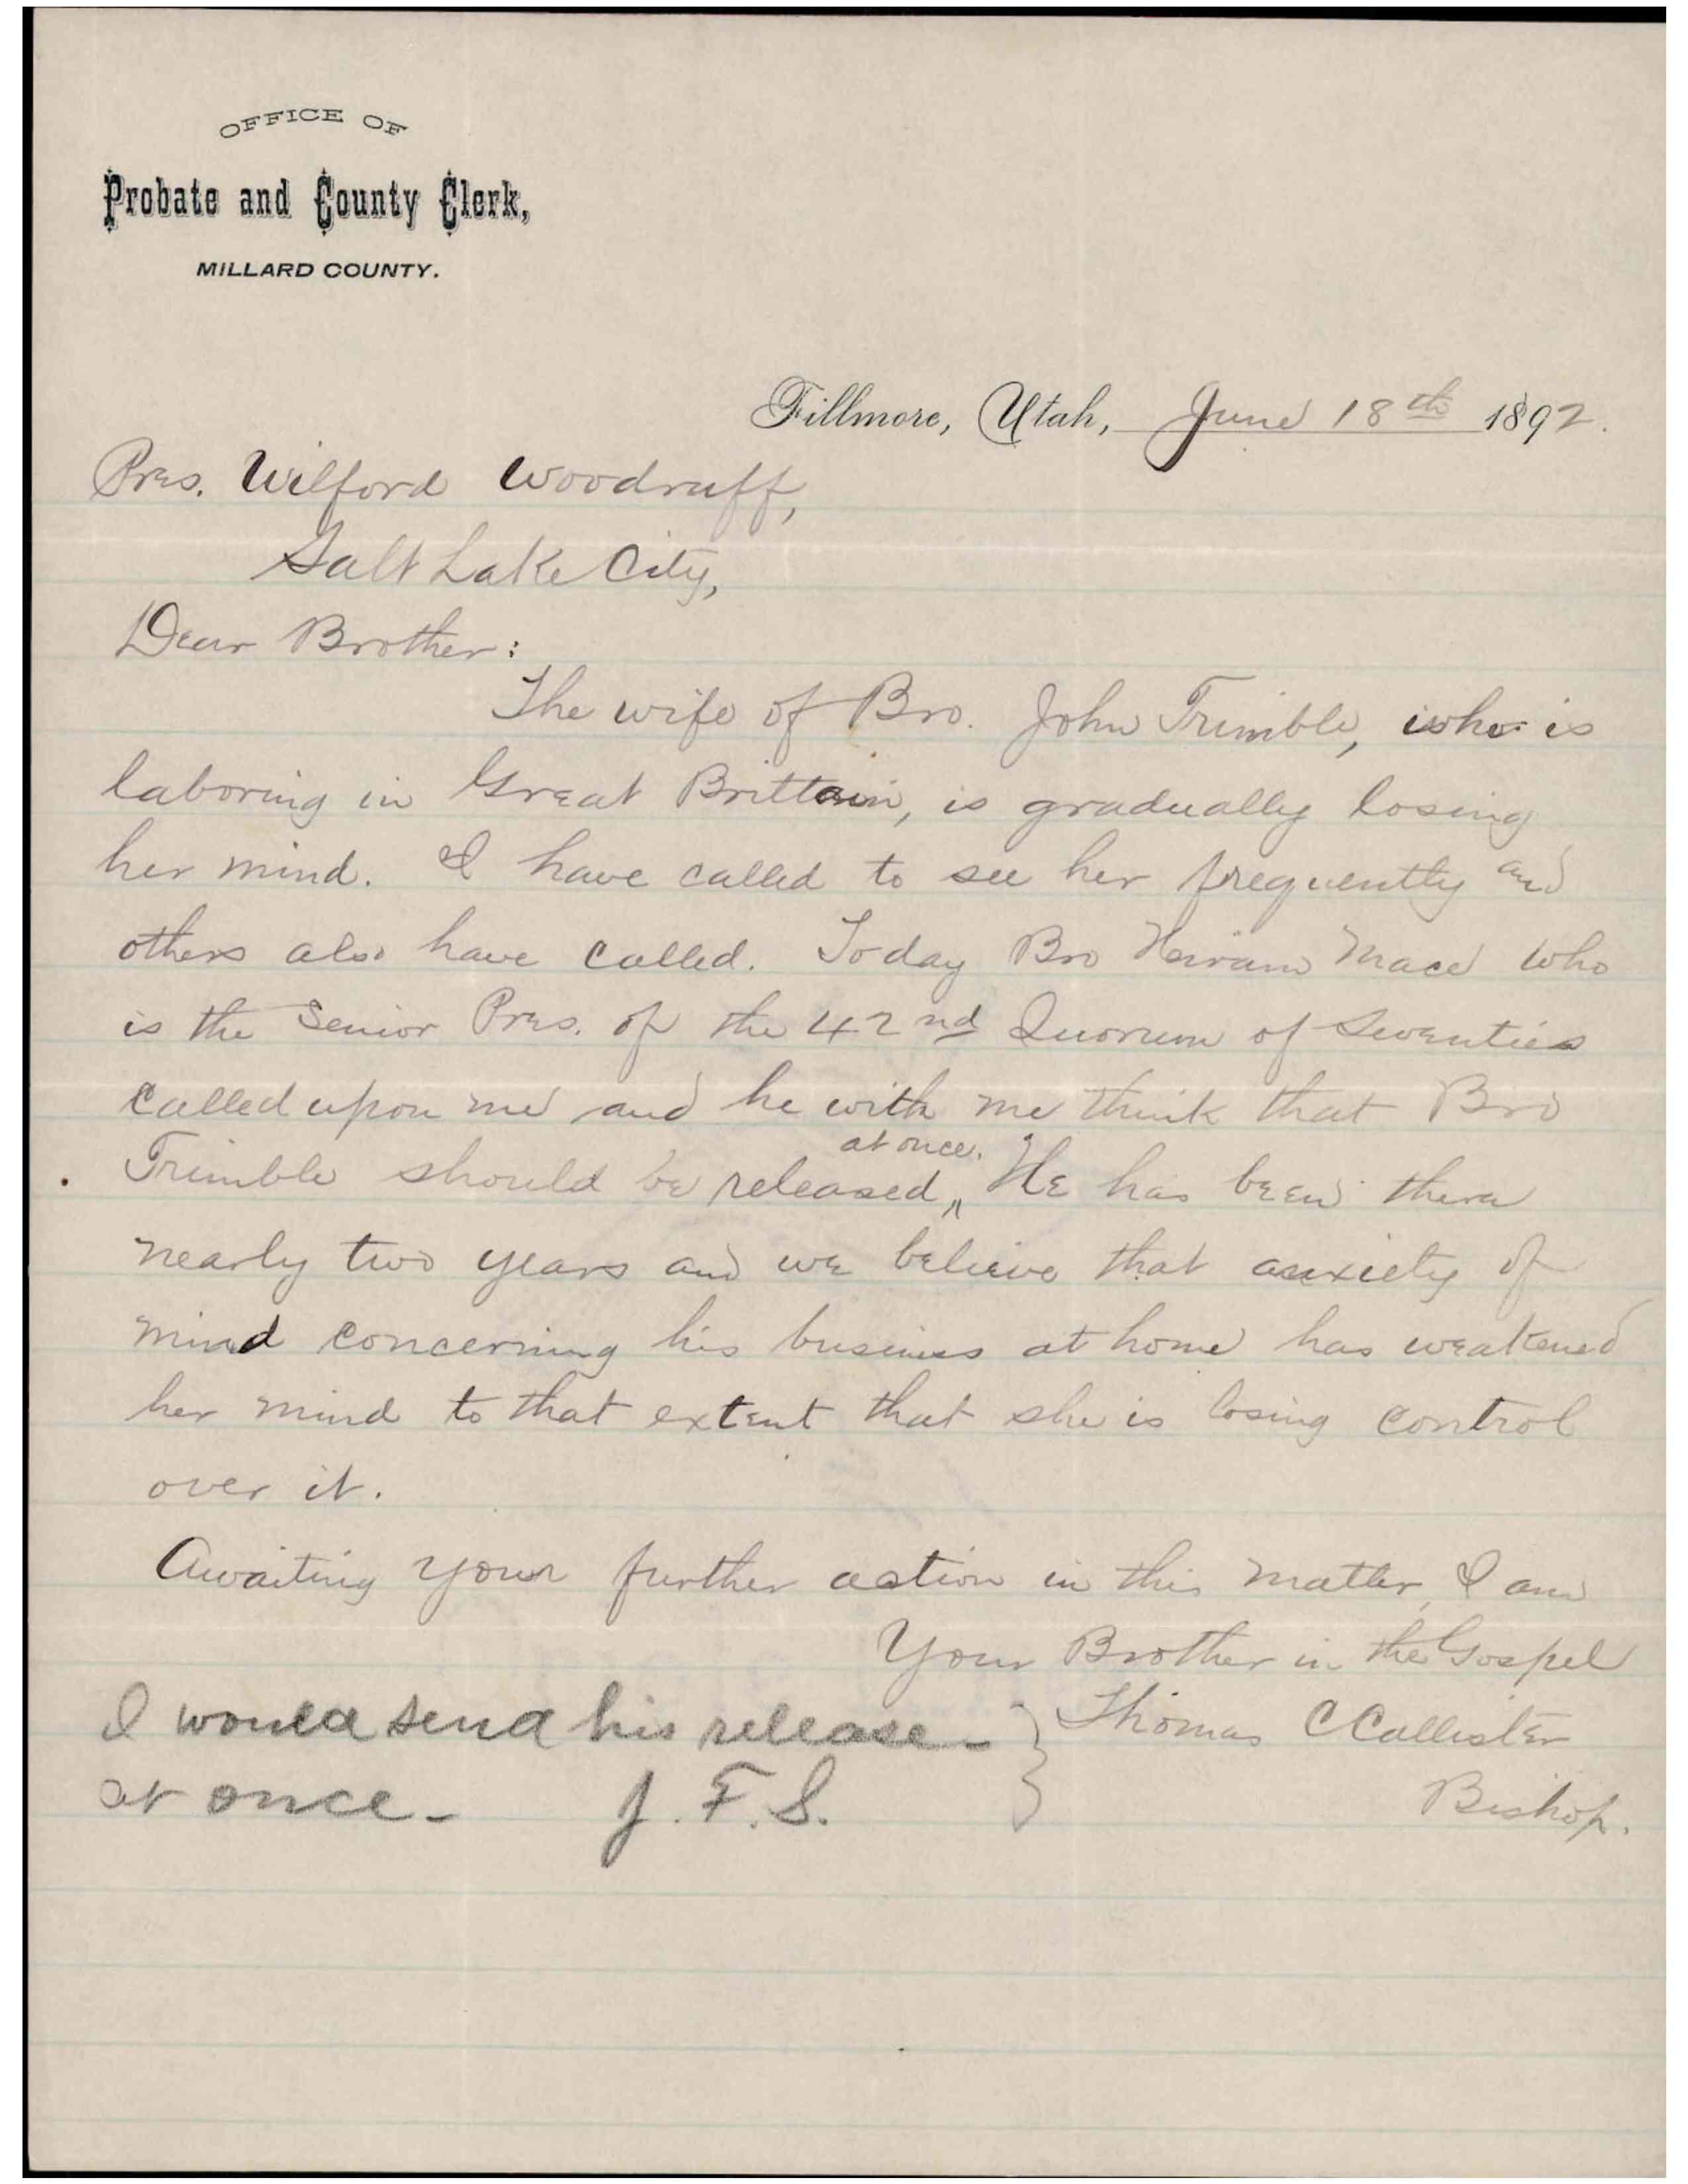 OFFICE OF
Probate and County Clerk,
MILLARD COUNTY.
Fillmore, Utah, June 18th 1892.
Pres. Wilford Woodruff,
Salt Lake City,
Dear Brother:
The wife of Bro. John Trimble, who is
laboring in Great Brittain, is gradually losing
her mind. I have called to see her frequently and
others also have called. Today Bro Hiram Mace who
is the Senior Pres. of the 42nd Quorum of Seventies
called upon me and he with me think that Bro
at once.
Trimble should be released, ^ He has been there
nearly two years and we believe that anxiety of
mind concerning his business at home has weakened
her mind to that extent that she is losing control
over it.
Awaiting your further action in this matter, I am
Your Brother in the Gospel
Thomas C Callister
Bishop.
I would send his release -
at once - J. F. S.